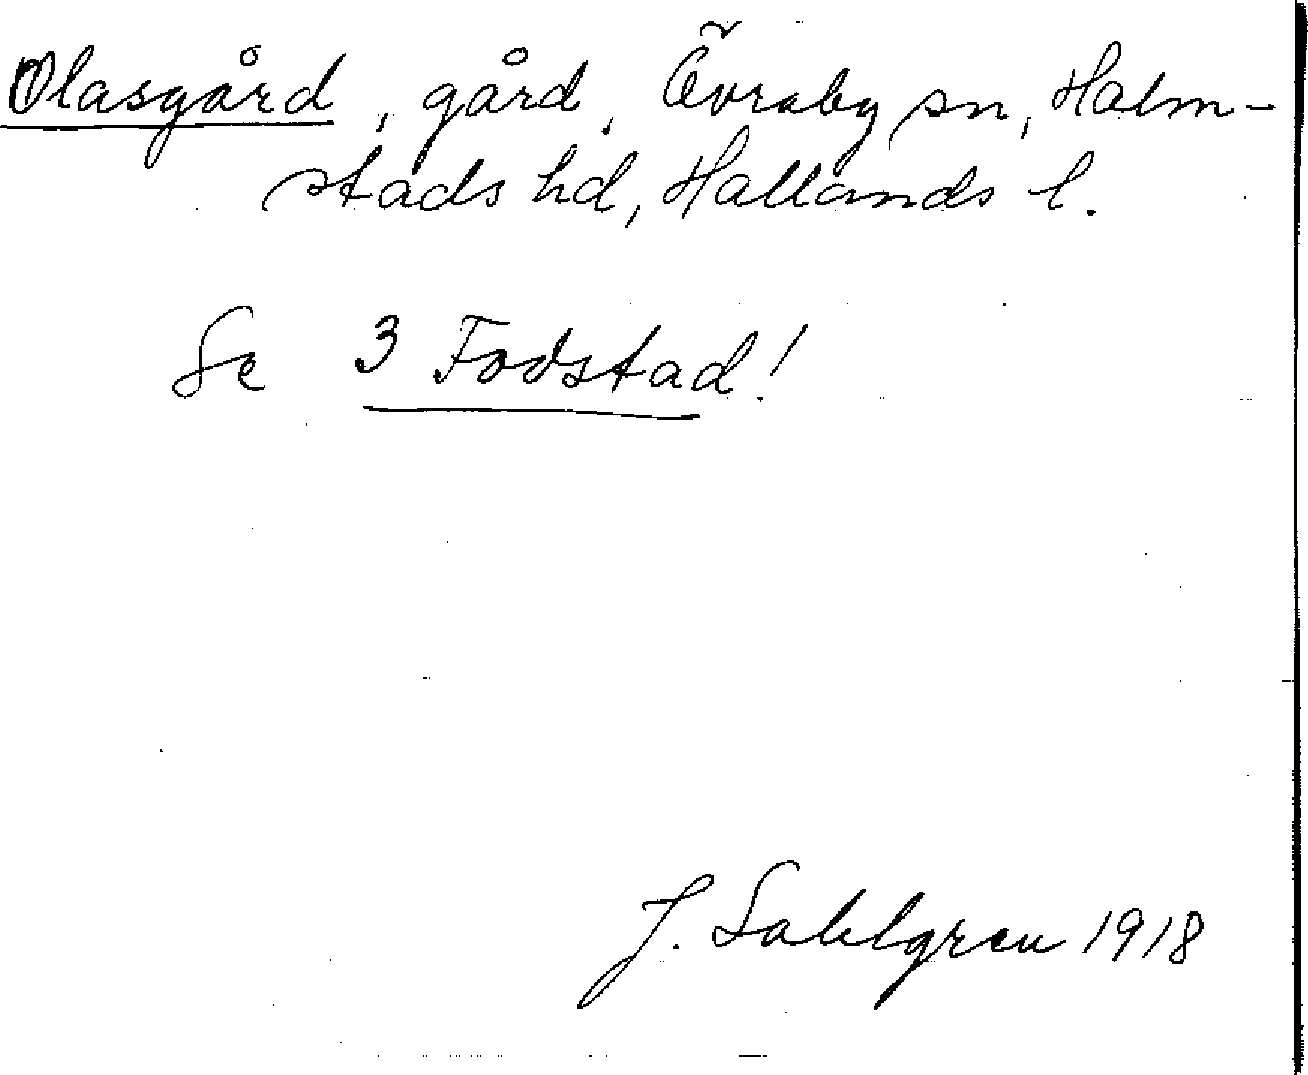 Olasgård, gård, Övraby sn, Halm-
stads hd, Hallands l.
Se 3 Fodstad!
J. Sahlgren 1918